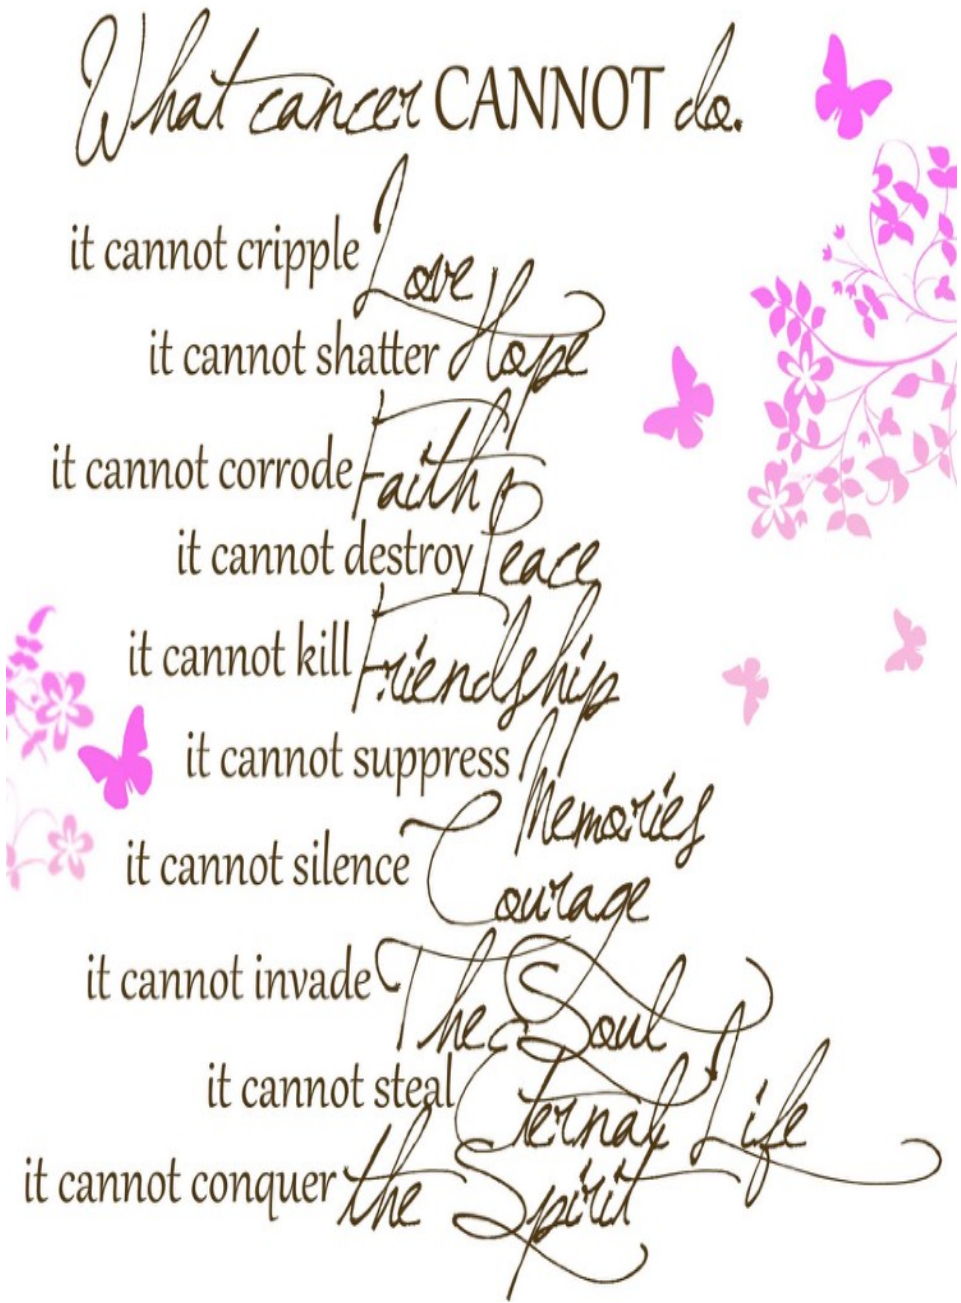 What cancer CANNOT do.
it cannot cripple Love
it cannot shatter Hope
it cannot corrode Faith
it cannot destroy Peace
it cannot kill Friendship
it cannot suppress Memories
it cannot silence Courage
it cannot invade The Soul
it cannot steal Eternal Life
it cannot conquer the Spirit